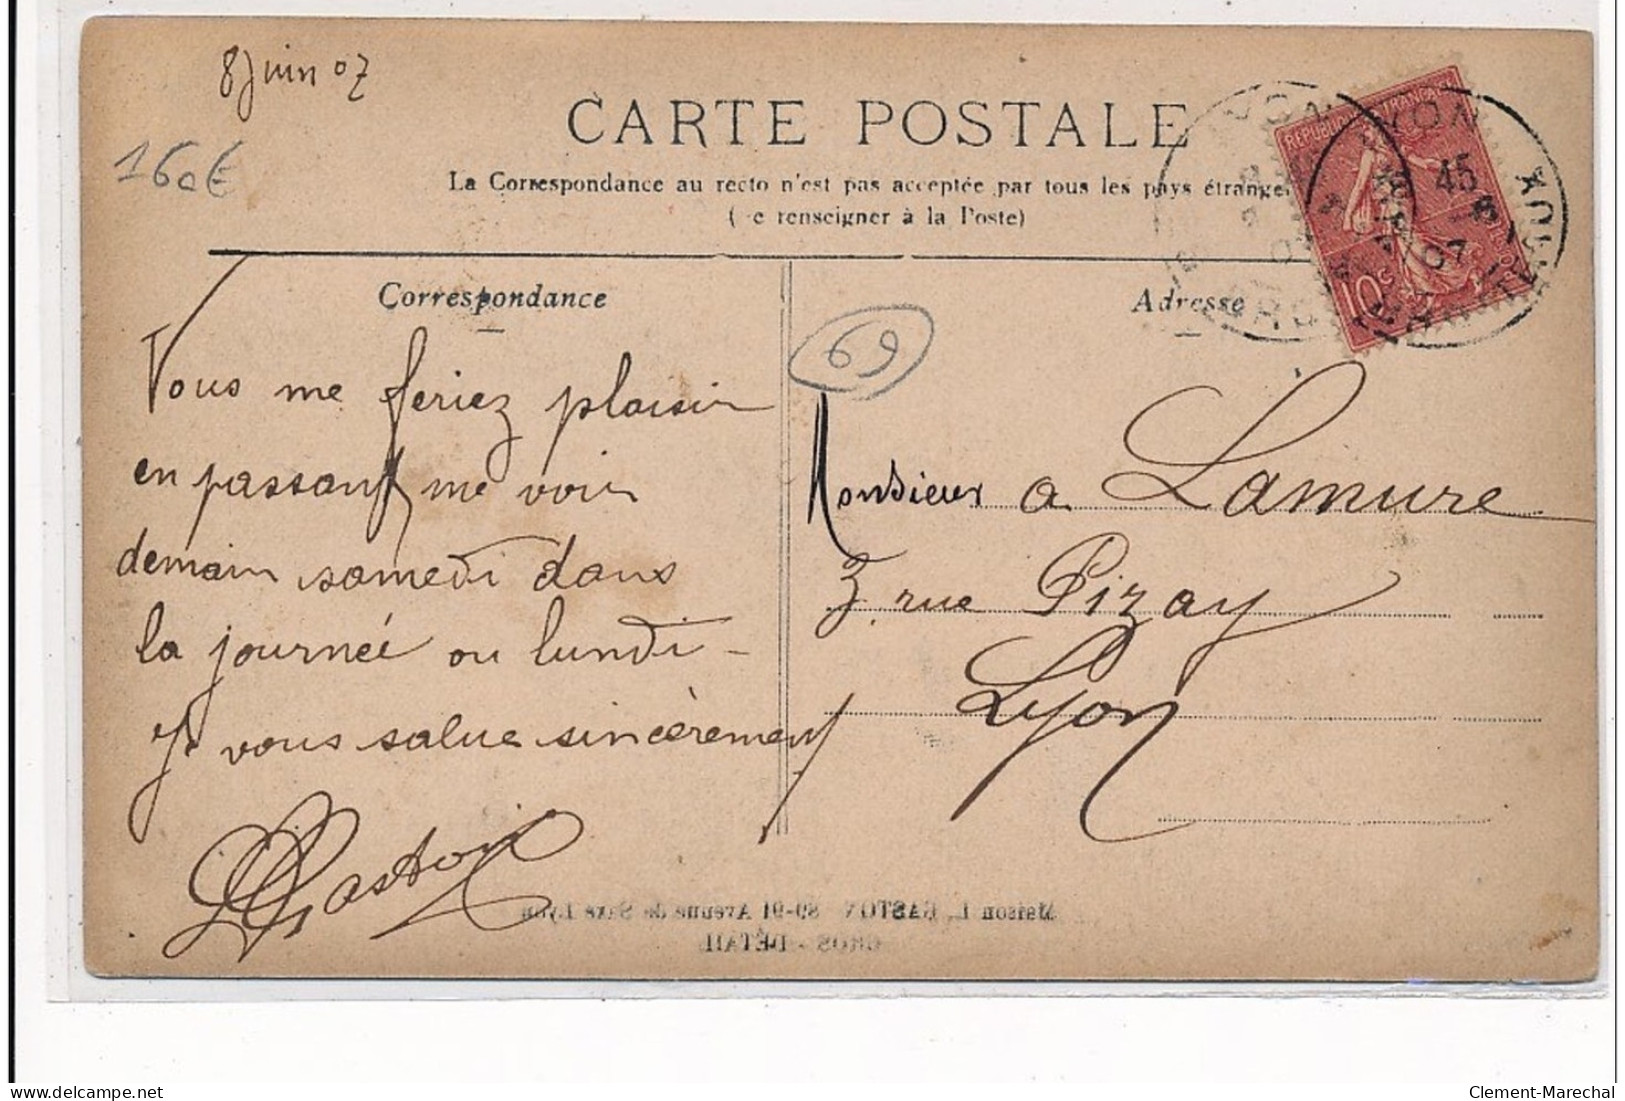 8 juin 07
160€
CARTE POSTALE
La Correspondance au recto n'est pas acceptée par tous les pays étrange
( e renseigner à la Poste)
REPUBLIQUE FRANÇAISE
10c
LYON
45
07
Correspondance
Adresse
69
Vous me feriez plaisir
en passant me voir
demain samedi dans
la journée ou lundi -
Je vous salue sincèrement
Gaston
Monsieur a Lamure
3 rue Pizay
Lyon
Maison L. GASTON 89-91 Avenue de Saxe Lyon
GROS - DÉTAIL
Clement-Marechal